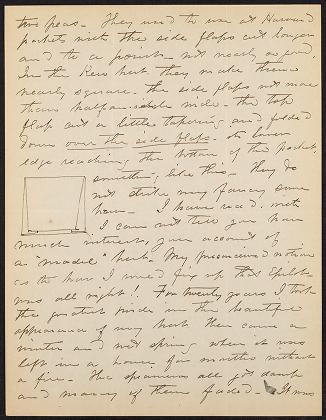 two peas - They used to use at Harvard
packets with the side flaps cut longer
and to a point - not nearly as good.
In the Kew herb. they make them
nearly square - the side flaps not more
than half an inch wide - the top
flap cut a little tapering and folded
down over the side flaps - its lower
edge reaching the bottom of the packet,
something like this - They do
not strike my fancy some
how - I have read, with
I can not tell you how
much interest, your account of
a "model" herb. My preconceived notion
as to how I would fix up that
was all right! For twenty years I took
the greatest pride in the beautiful
appearance of my herb. then came a
winter and wet spring when it was
left in a house for months without
a fire - the specimens all got damp
and many of them faded - It was